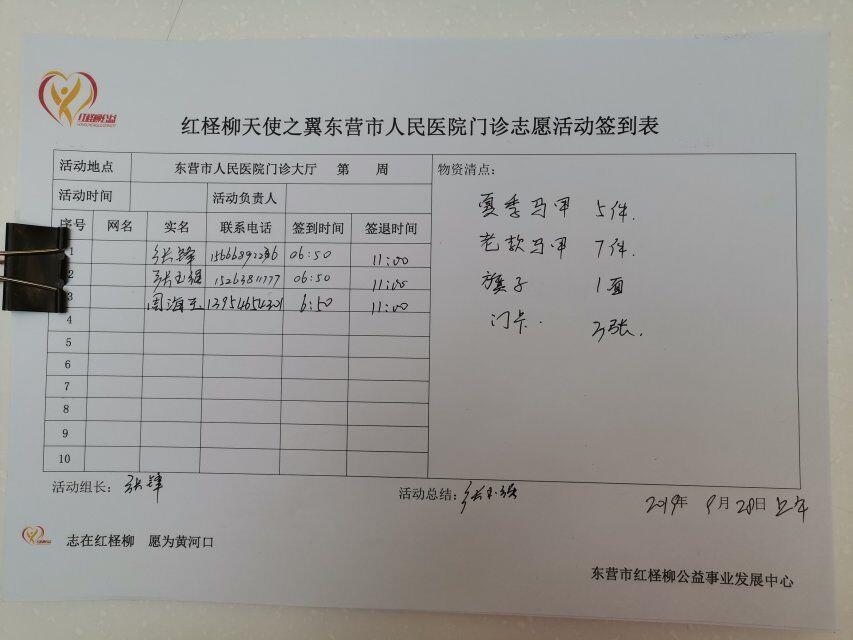 红柽柳公益
红柽柳天使之翼东营市人民医院门诊志愿活动签到表
活动地点 东营市人民医院门诊大厅 第 周 物资清点：
活动时间 活动负责人
序号 网名 实名 联系电话 签到时间 签退时间
夏季马甲 5件.
老款马甲 7件.
旗子 1面
门卡. 3张.
1 张锋 06:50 11:00
2 张玉强 15263811777 06:50 11:00
3 周海 13954654301 6:50 11:00
4
5
6
7
8
9
10
活动组长：张锋 活动总结：张玉强
2019年 9月28日 上午
志在红柽柳 愿为黄河口
东营市红柽柳公益事业发展中心